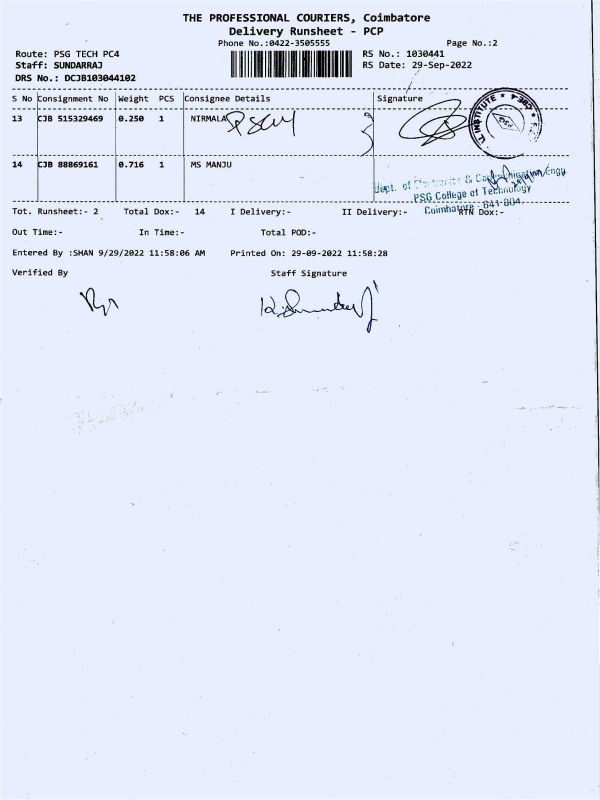 THE PROFESSIONAL COURIERS, Coimbatore
Delivery Runsheet - PCP
Phone No.:0422-3505555 Page No.:2
Route: PSG TECH PC4 RS No.: 1030441
Staff: SUNDARRAJ RS Date: 29-Sep-2022
DRS No.: DCJB103044102
S No Consignment No Weight PCS Consignee Details Signature
13 CJB 515329469 0.250 1 NIRMALA
INSTITUTE
14 CJB 88869161 0.716 1 MS MANJU
Dept. of Engg
PSG College of Technology
Coimbatore - 641 004.
Tot. Runsheet:- 2 Total Dox:- 14 I Delivery:- II Delivery:- RTN Dox:-
Out Time:- In Time:- Total POD:-
Entered By :SHAN 9/29/2022 11:58:06 AM Printed On: 29-09-2022 11:58:28
Verified By Staff Signature